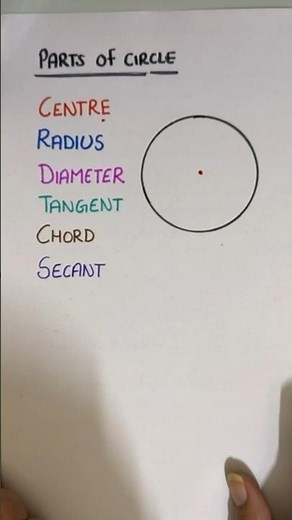 PARTS of CIRCLE
CENTRE
RADIUS
DIAMETER
TANGENT
CHORD
SECANT